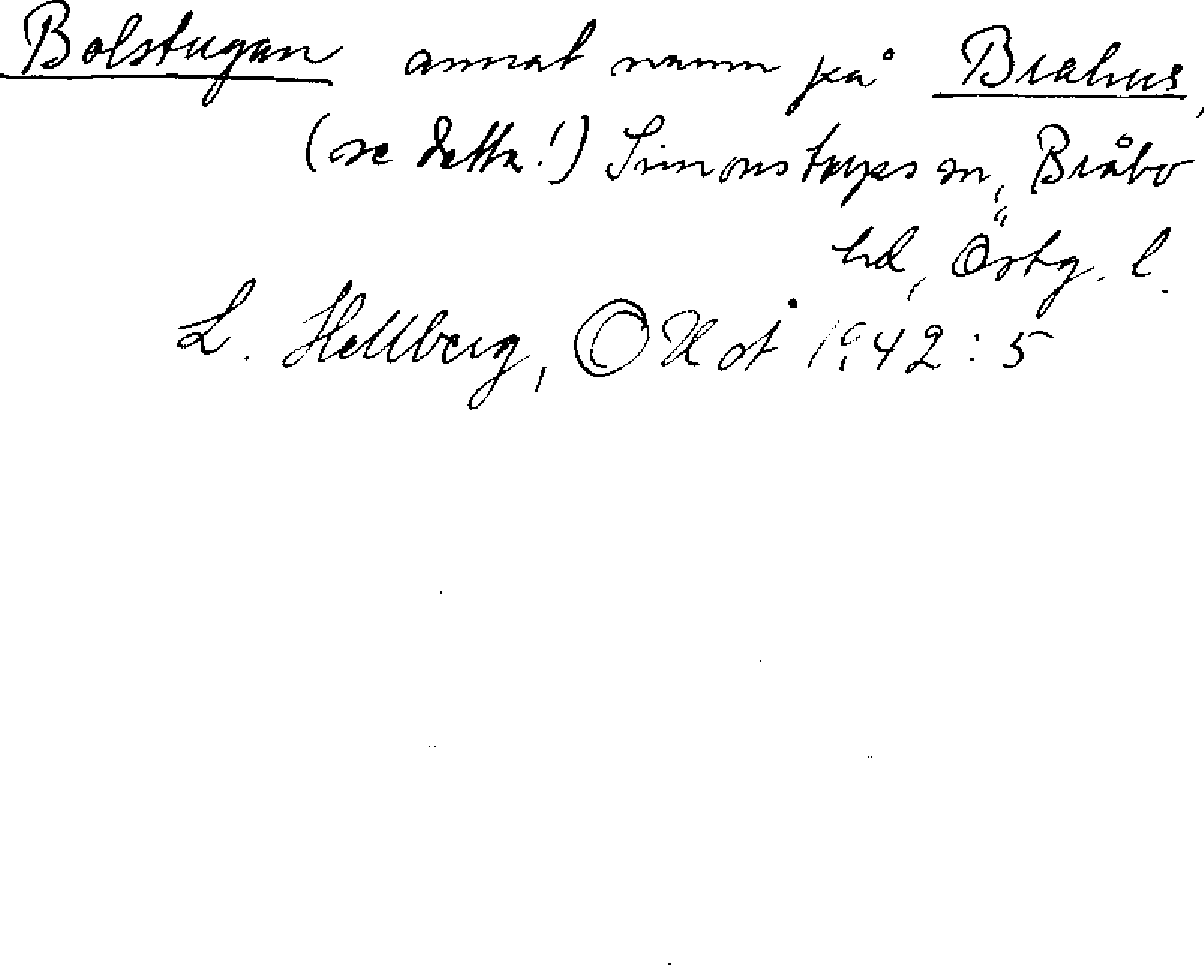 Bolstugan annat namn på Brahus,
(se detta!) Simonstorps sn, Bråbo
hd, Östg. l.
L. Hellberg, 1942:5